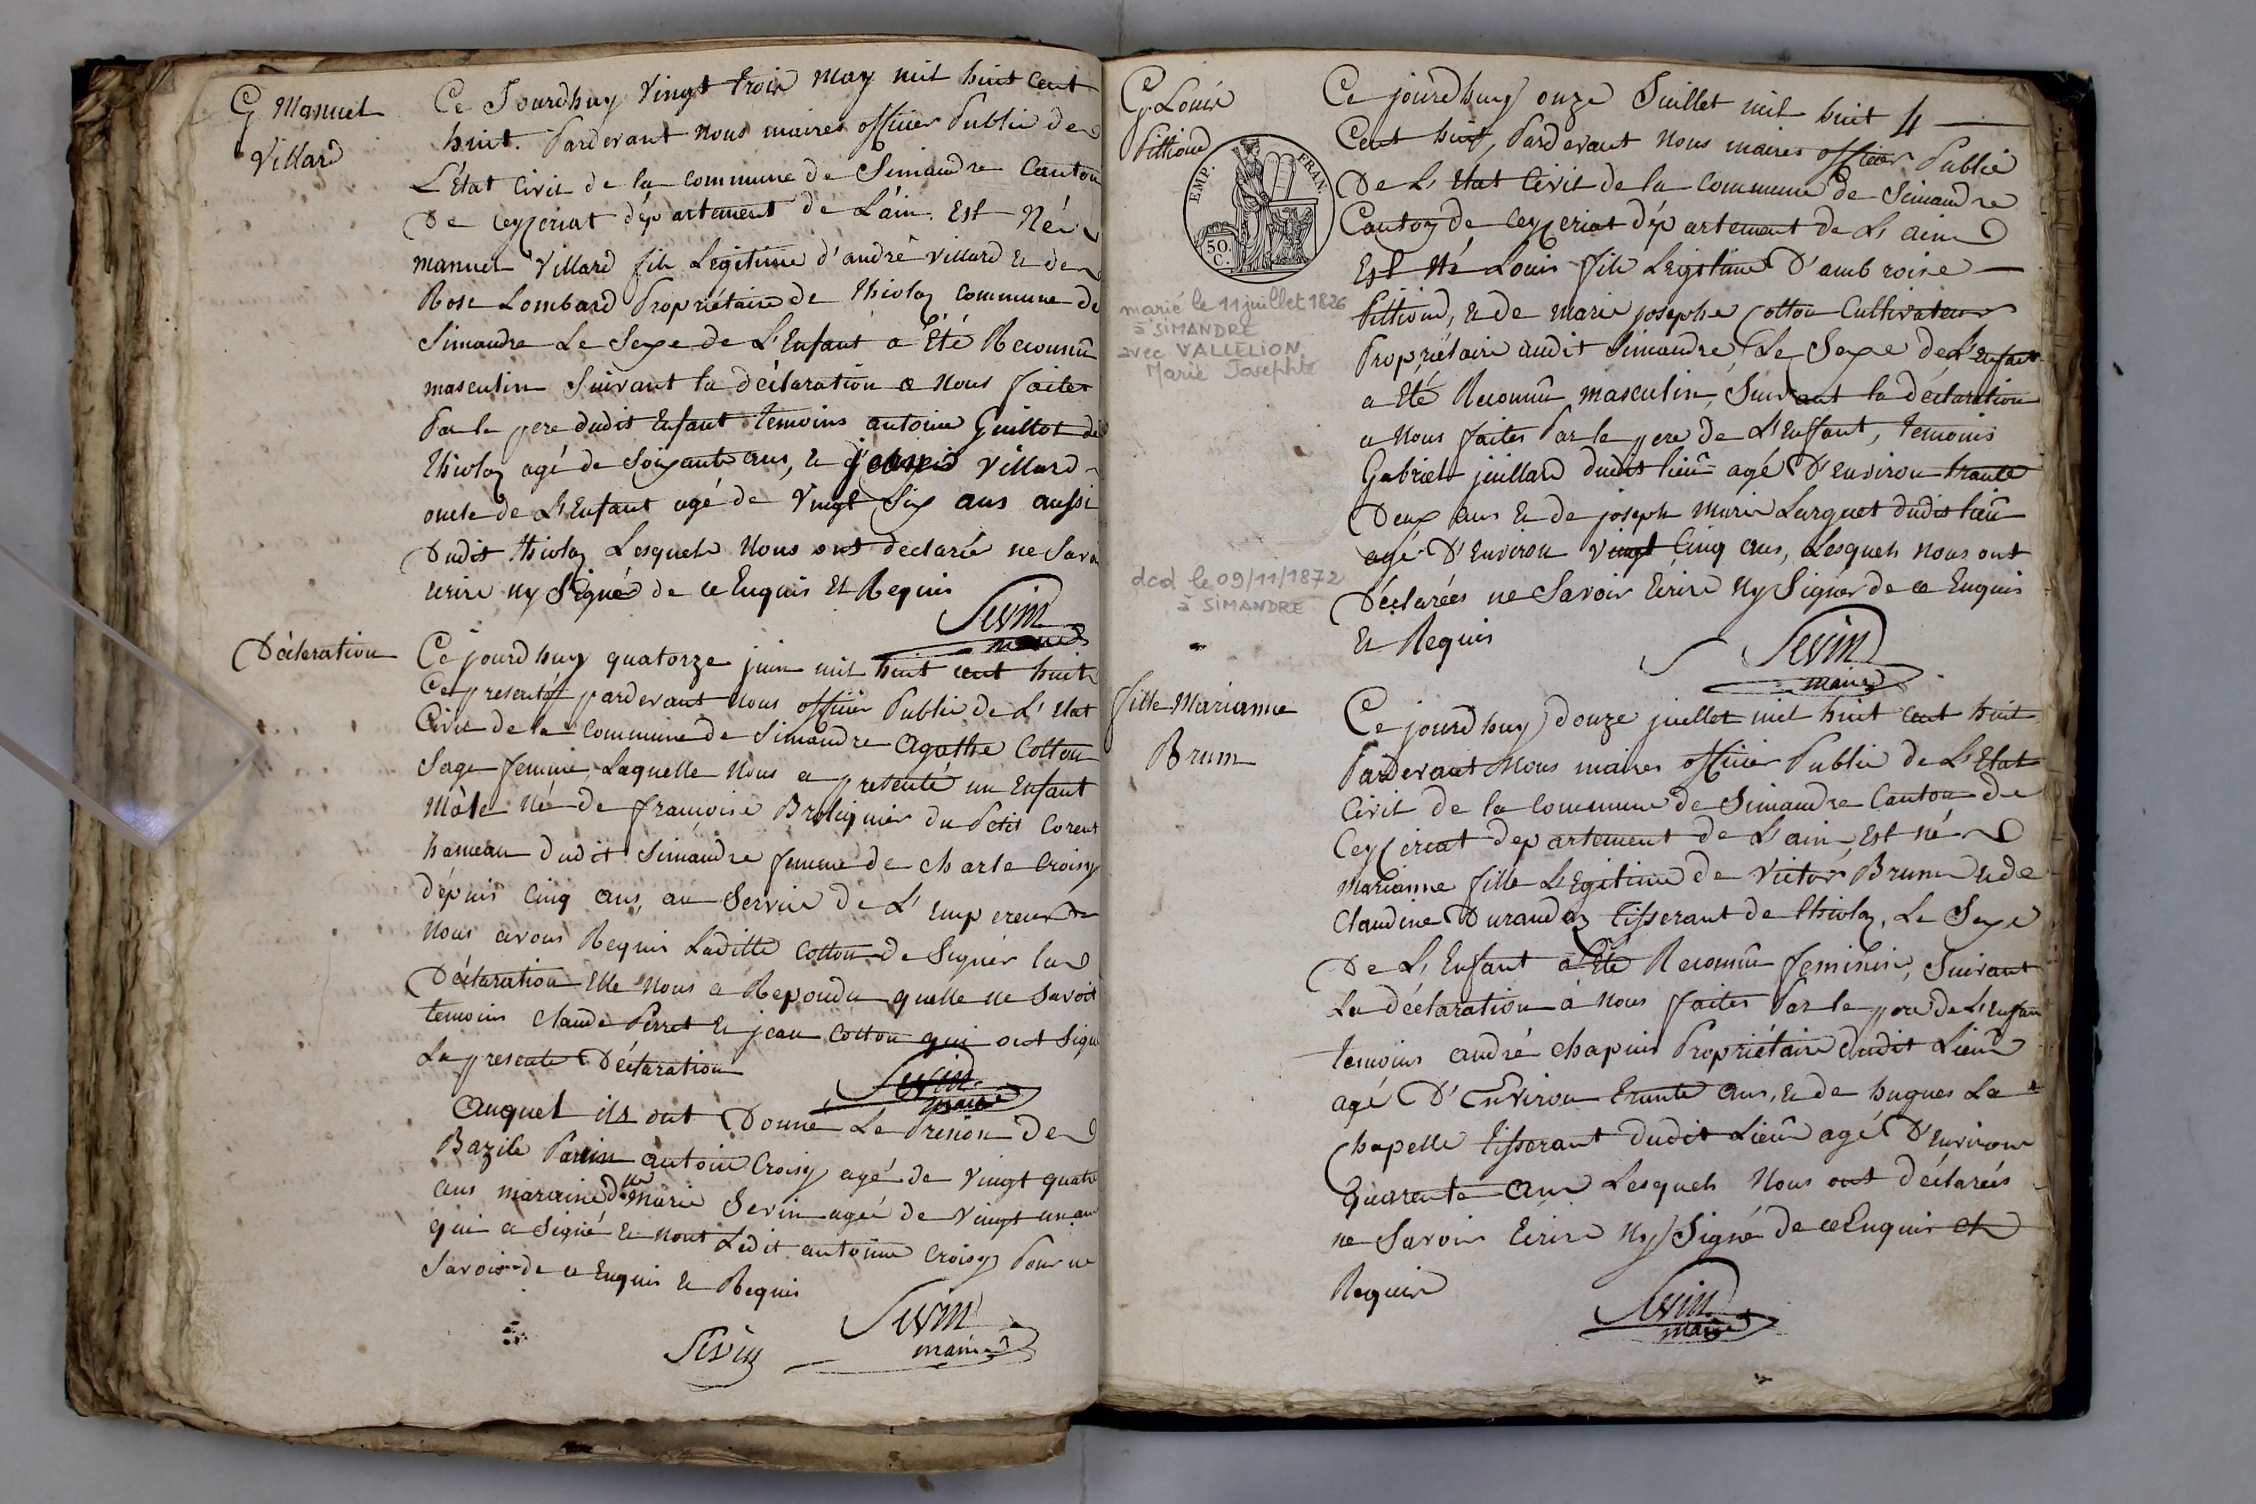 G Manuel
Villard
Ce Jourdhuy Vingt trois May mil huit Cent
huit. Pardevant Nous maires officier Public de
L'État Civil de la Commune de Simandre Canton
De ceyzeriat département de L'ain. Est Né
manuel Villard fils Legitime d'andré Villard et de
Rose Lombard Propriétaire de Thiolaz Commune de
Simandre Le Sexe de L'Enfant a Été Reconnû
masculin Suivant la déclaration a Nous faites
Par le pere dudit Enfant temoins antoine Guillot de
thiolaz agé de Soixante ans, et Villard
oncle de L'Enfant agé de Vingt Six ans aussi
Dudit thiolaz Lesquels Nous ont déclarée ne Savoir
écrire ny Signé de ce Enquis Et Requis
Sevin
maire
Déclaration
Ce jourd'huy quatorze juin mil huit cent huit
Ce presenté pardevant nous officier Public de L'Etat
Civil de la Commune de Simandre agathe Cotton
Sage femme, Laquelle Nous a presenté un Enfant
Mâle Né de françoise Broliquier du Petit Corent
hameau dudit Simandre femme de charle Croisy
dépuis Cinq ans, au Service de L'empereur
Nous avons Requis Laditte Cotton de Signer la
Déclaration Elle Nous a Repondu quelle ne Savoit
temoins claude Perret et jean Cotton qui ont Signé
La presente Déclaration
Sevin
maire
auquel ils ont Donné Le Prenon de
Bazile Parin antoine Croisy agé de Vingt quatre
ans maraine dlle Marie Sevin agée de Vingt un an
qui a Signé et nont Ledit antoine Croisy Pour ne
Savoir de ce Enquis et Requis
Sevin
Sevin
maire
G Louis
Pittioud
EMP. FRAN.
50.
C.
marié le 11 juillet 1826
à SIMANDRE
avec VALLELION
Marie Josephte
dcd le 09/11/1872
à SIMANDRE
4
Ce jourd'huy onze Juillet mil huit
Cent huit, Pardevant Nous maires officier Public
De L'Etat Civil de la Commune de Simandre
Canton de Ceyzeriat département de L'ain
Est Né Louis fils Legitime D'ambroise
Pittioud, et de Marie josephe Cotton Cultivateur
Propriétaire audit Simandre Le Sexe de L'Enfant
a Été Reconnû masculin, Suivant la déclaration
a Nous faites Par le pere de L'Enfant, temoins
Gabriel juillard dudit lieû agé D'environ trante
Deux ans et de joseph Marie Larguet dudit lieû
agé D'environ vingt Cinq ans, Lesquels Nous ont
Déclarées ne Savoir Ecrire Ny Signer de ce Enquis
Et Requis
Sevin
maire
fille Marianne
Brun
Ce jourd'huy douze juillet mil huit cent huit
Pardevant Nous maires officier Public de L'Etat
Civil de la Commune de Simandre Canton de
Ceyzeriat departement de L'ain, Est né
Marianne fille Legitime de Victor Brun et de
Claudine Durandaz tisserant de thiolaz, Le Sexe
De L'Enfant a Été Reconnû feminin, Suivant
La déclaration à Nous faites Par le pere de L'Enfant
temoins andré chapuis Propriétaire dudit Lieû
agé D'Environ trante ans, et de hugues La
Chapelle tisserant dudit Lieû agé D'environ
Quarante ans Lesquels Nous ont déclarées
ne Savoir Ecrire Ny Signé de ce Enquis et
Requis
Sevin
maire